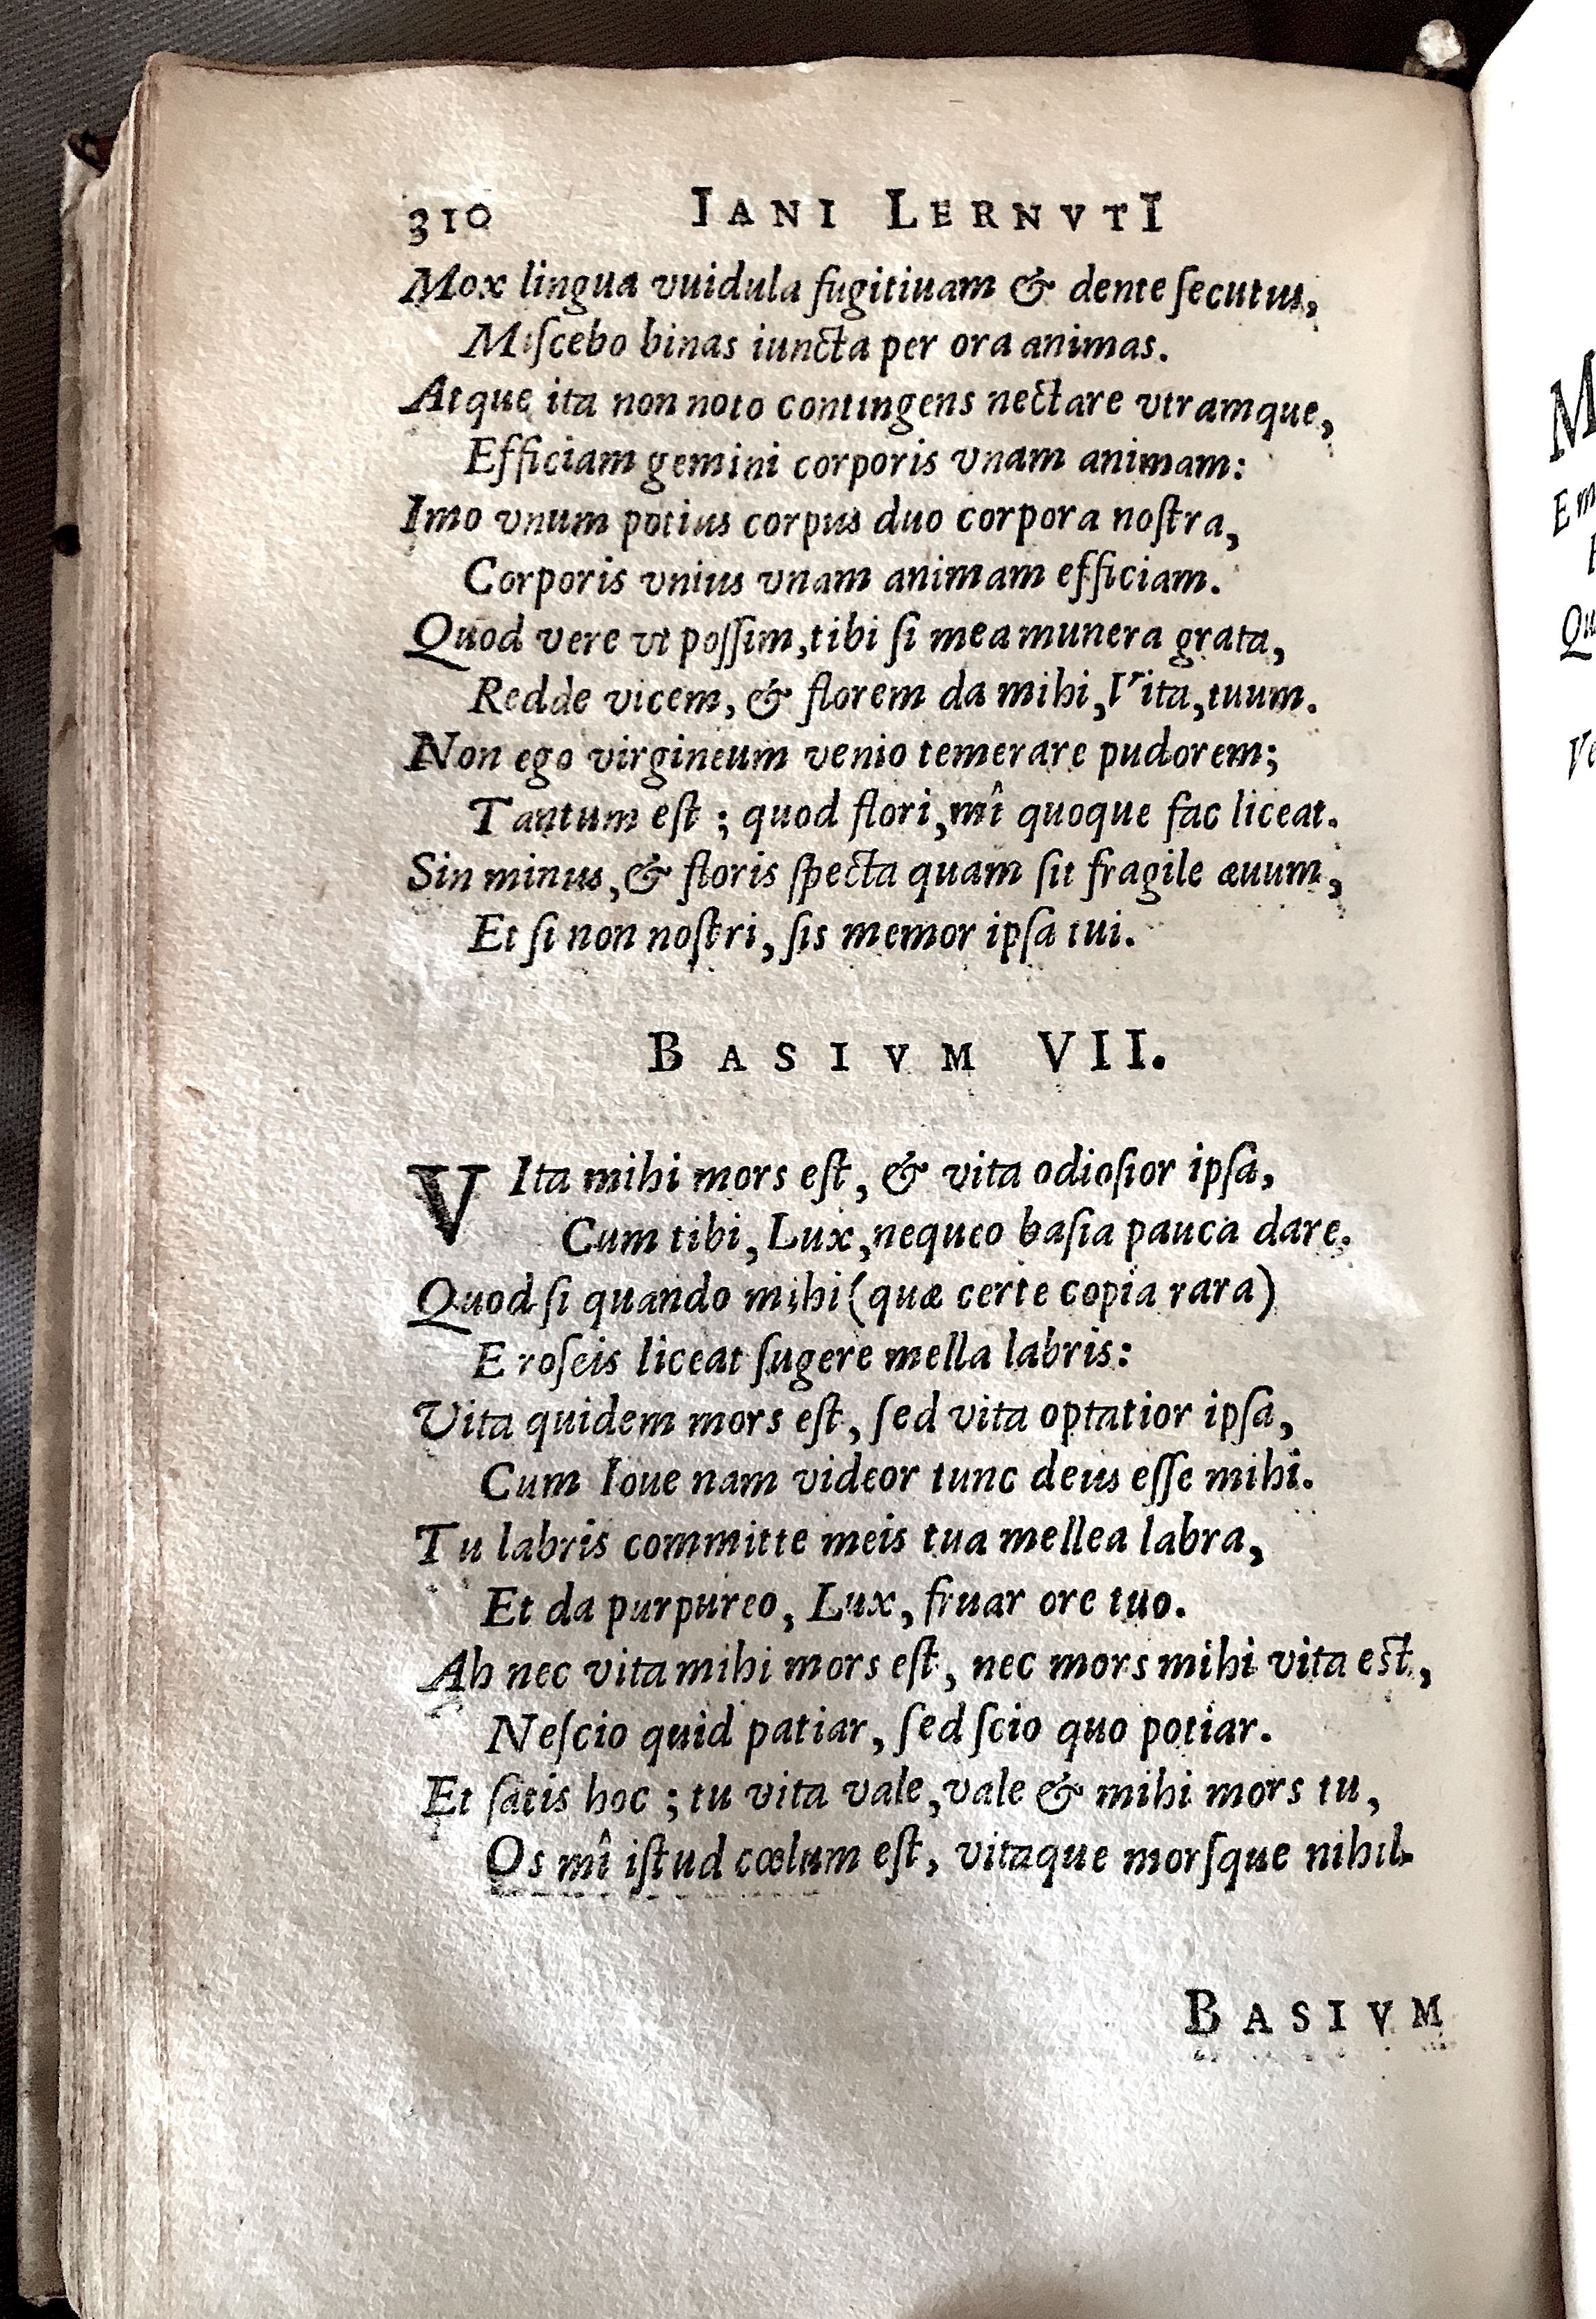 310 IANI LERNVTI
Mox lingua vuidula fugitiuam & dente ſecutus,
Miſcebo binas iuncta per ora animas.
Atque ita non noto contingens nectare vtramque,
Efficiam gemini corporis vnam animam:
Imo vnum potius corpus duo corpora noſtra,
Corporis vnius vnam animam efficiam.
Quod vere vt poſſim, tibi ſi mea munera grata,
Redde vicem, & florem da mihi, Vita, tuum.
Non ego virgineum venio temerare pudorem;
Tantum eſt; quod flori, mî quoque fac liceat.
Sin minus, & floris ſpecta quam ſit fragile æuum,
Et ſi non noſtri, ſis memor ipſa tui.
BASIVM VII.
VIta mihi mors eſt, & vita odioſior ipſa,
Cum tibi, Lux, nequeo baſia pauca dare.
Quod ſi quando mihi (quæ certe copia rara)
E roſeis liceat ſugere mella labris:
Vita quidem mors eſt, ſed vita optatior ipſa,
Cum Ioue nam videor tunc deus eſſe mihi.
Tu labris committe meis tua mellea labra,
Et da purpureo, Lux, fruar ore tuo.
Ah nec vita mihi mors eſt, nec mors mihi vita eſt,
Neſcio quid patiar, ſed ſcio quo potiar.
Et ſatis hoc; tu vita vale, vale & mihi mors tu,
Os mî iſtud cœlum eſt, vitaque morſque nihil.
BASIVM